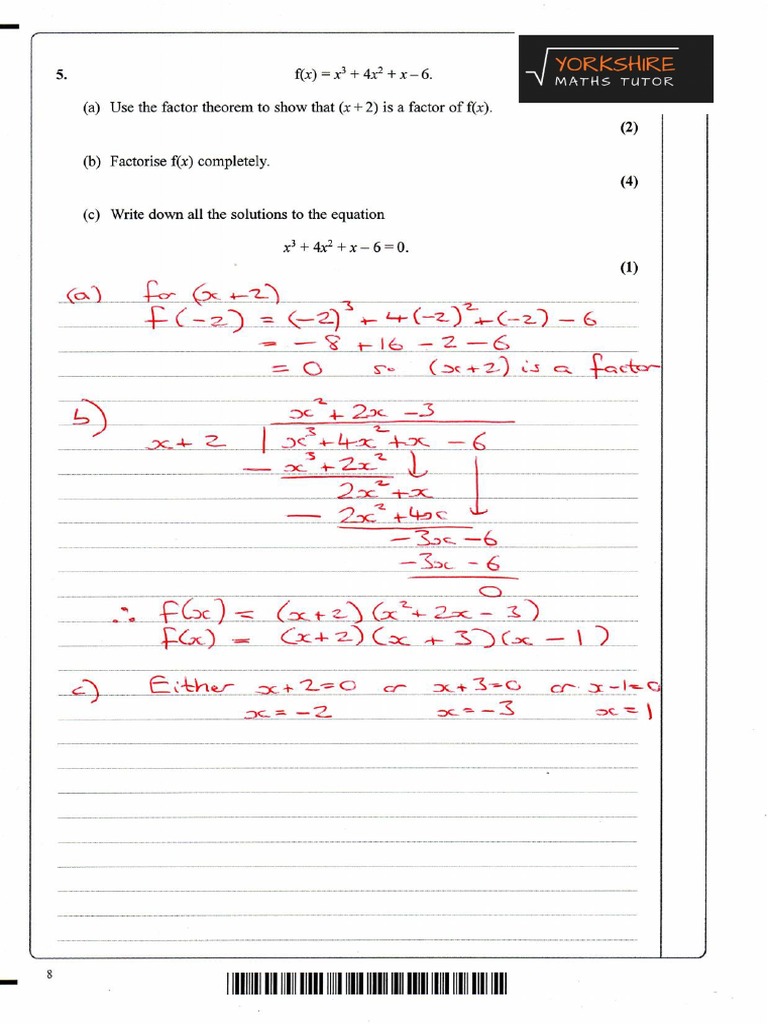 YORKSHIRE
MATHS TUTOR
5. f(x) = x³ + 4x² + x – 6.
(a) Use the factor theorem to show that (x + 2) is a factor of f(x).
(2)
(b) Factorise f(x) completely.
(4)
(c) Write down all the solutions to the equation
x³ + 4x² + x – 6 = 0.
(1)
(a) for (x+2)
f(-2) = (-2)³ + 4(-2)² + (-2) - 6
= - 8 + 16 - 2 - 6
= 0 so (x+2) is a factor
b) x² + 2x - 3
x + 2 | x³ + 4x² + x - 6
- x³ + 2x² ↓
2x² + x
- 2x² + 4x ↓
- 3x - 6
- 3x - 6
0
∴ f(x) = (x+2)(x² + 2x - 3)
f(x) = (x+2)(x + 3)(x - 1)
c) Either x+2=0 or x+3=0 or x-1=0
x = -2 x = -3 x = 1
8